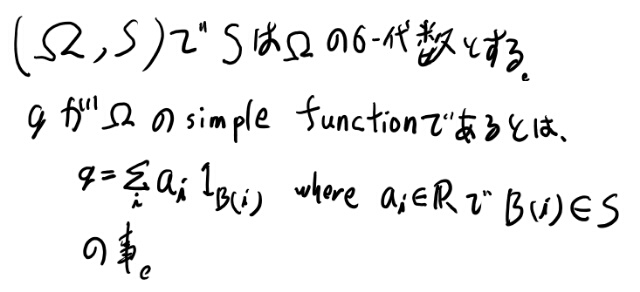 (Ω, S)で SはΩのσ-代数とする。
φがΩのsimple functionであるとは、
φ=Σ_i a_i 1_{B(i)} where a_i∈ℝで B(i)∈S
の事。